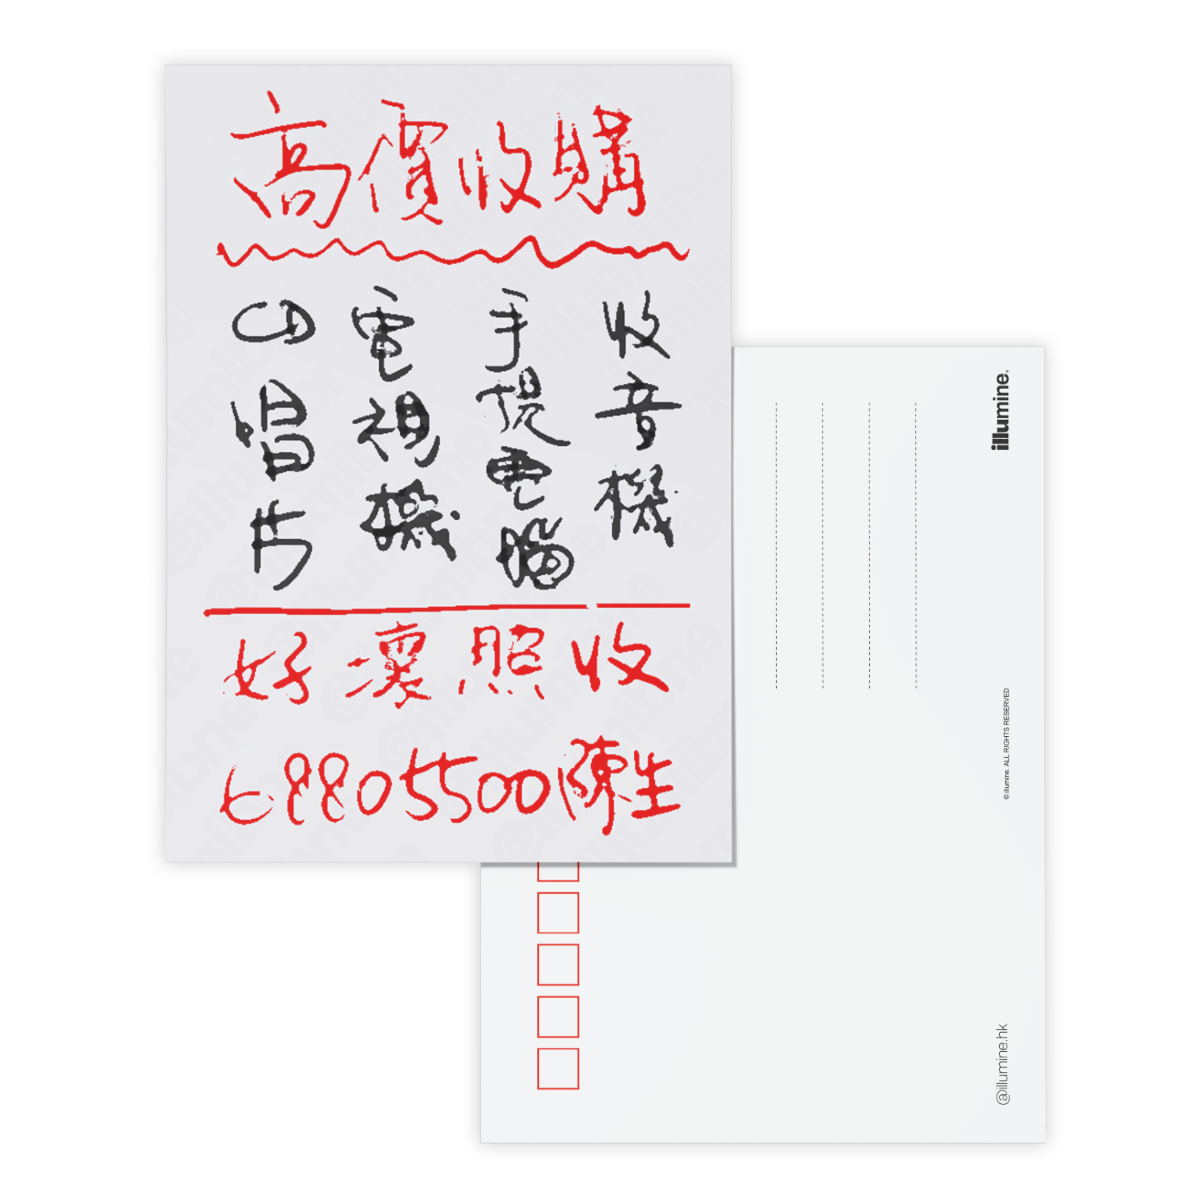 高價收購
收音機
手提電腦
電視機
CD唱片
好壞照收
68805500陳生
illumine.
© illumine. ALL RIGHTS RESERVED
@illumine.hk